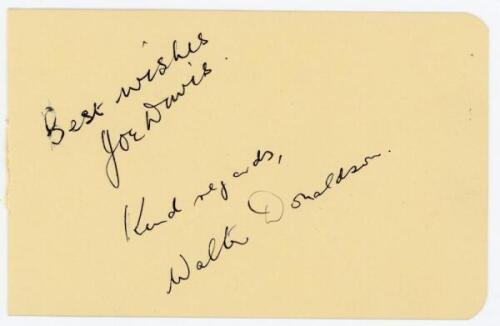 Best wishes
Joe Davis.
Kind regards,
Walter Donaldson.